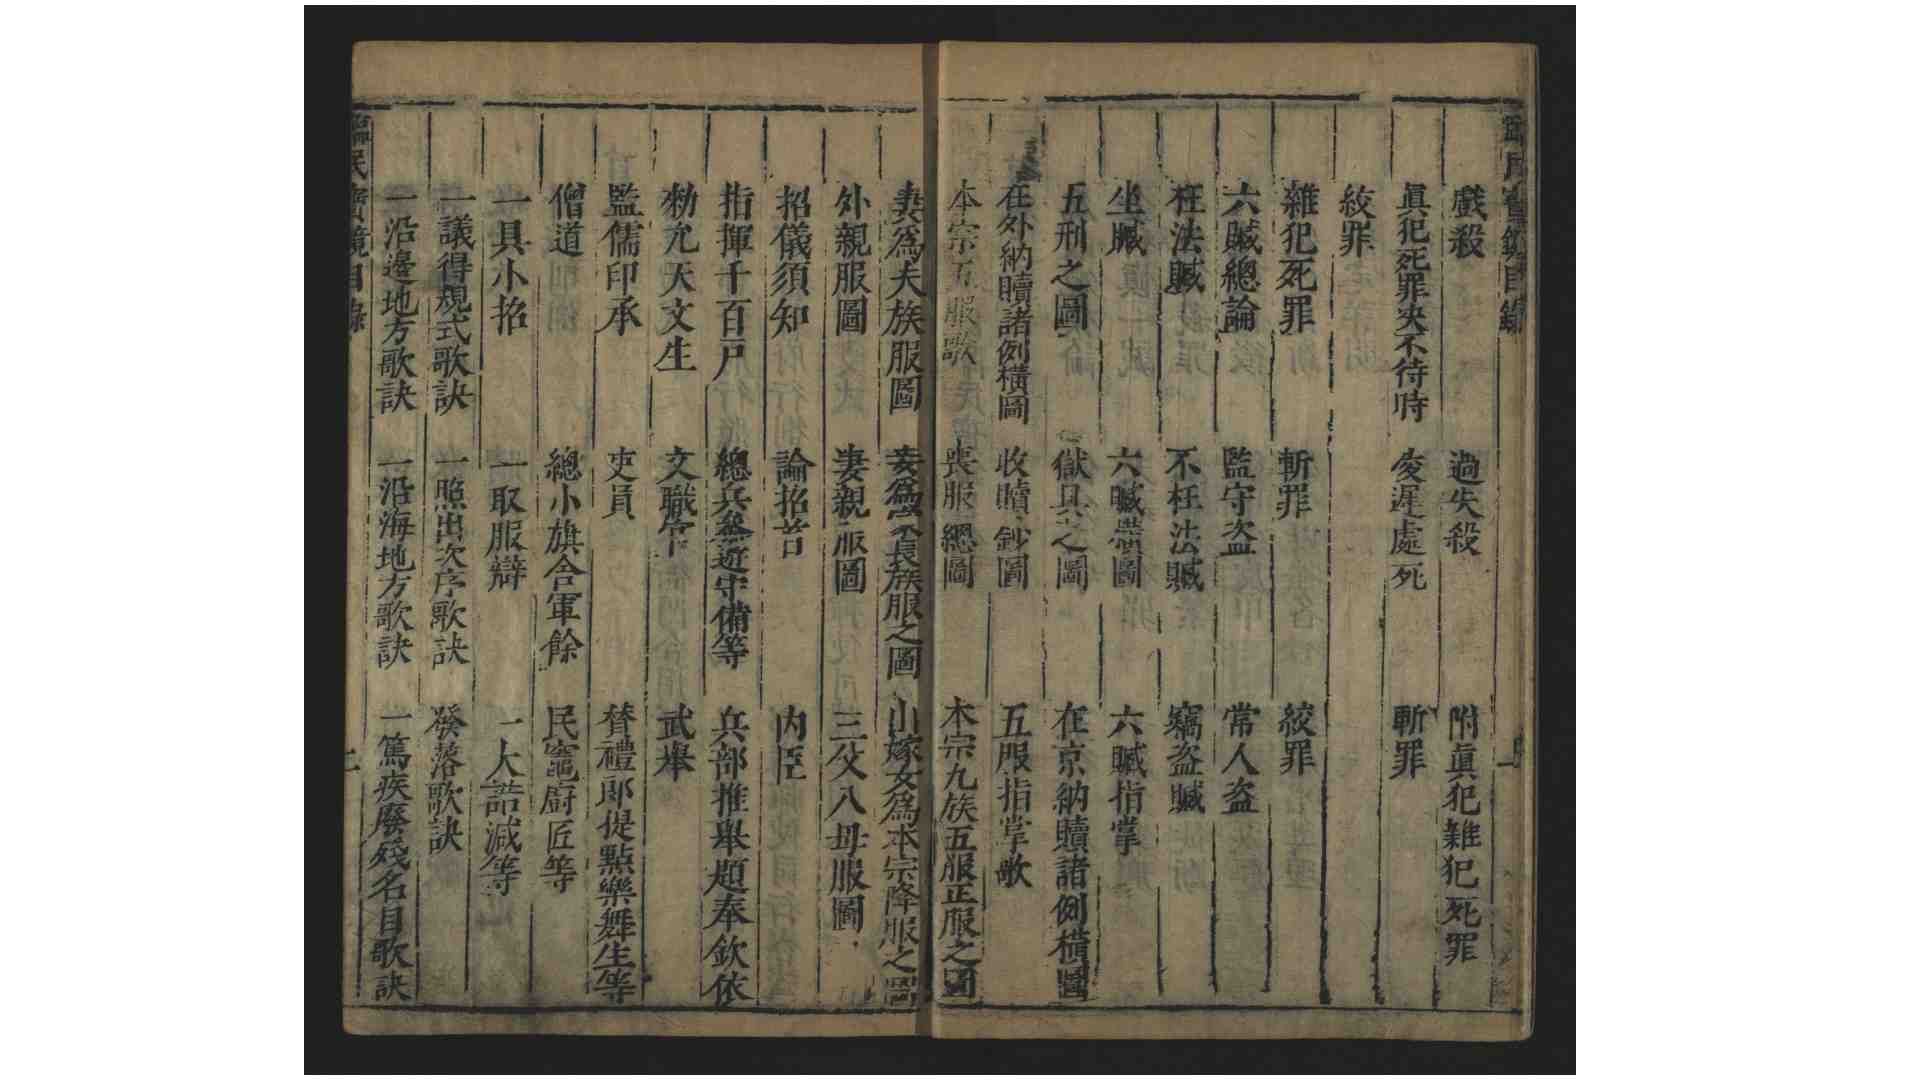 臨民寶鏡目錄
戲殺 過失殺 附眞犯雜犯死罪
眞犯死罪决不待時 凌遲處死 斬罪
絞罪
雜犯死罪 斬罪 絞罪
六贓總論 監守盗 常人盗
枉法贓 不枉法贓 竊盗贓
坐贓 六贓橫圖 六贓指掌
五刑之圖 獄具之圖 在京納贖諸例橫圖
在外納贖諸例橫圖 收贖鈔圖 五服指掌歌
本宗五服歌 喪服總圖 本宗九族五服正服之圖
妻爲夫族服圖 妾爲家長族服之圖 出嫁女爲本宗降服之圖
外親服圖 妻親服圖 三父八母服圖
招儀須知 論招首 内臣
指揮千百戸 總兵叅遊守備等 兵部推舉題奉欽依
勑尤天文生 文職官 武舉
監儒印承 吏員 賛禮郎提點樂舞生等
僧道 總小旗舍軍餘 民竈廚匠等
一具小招 一取服辯 一大誥減等
一議得規式歌訣 一照出次序歌訣 發落歌訣
一沿邊地方歌訣 一沿海地方歌訣 一篤疾廢殘名目歌訣
臨民寶鏡目錄 二